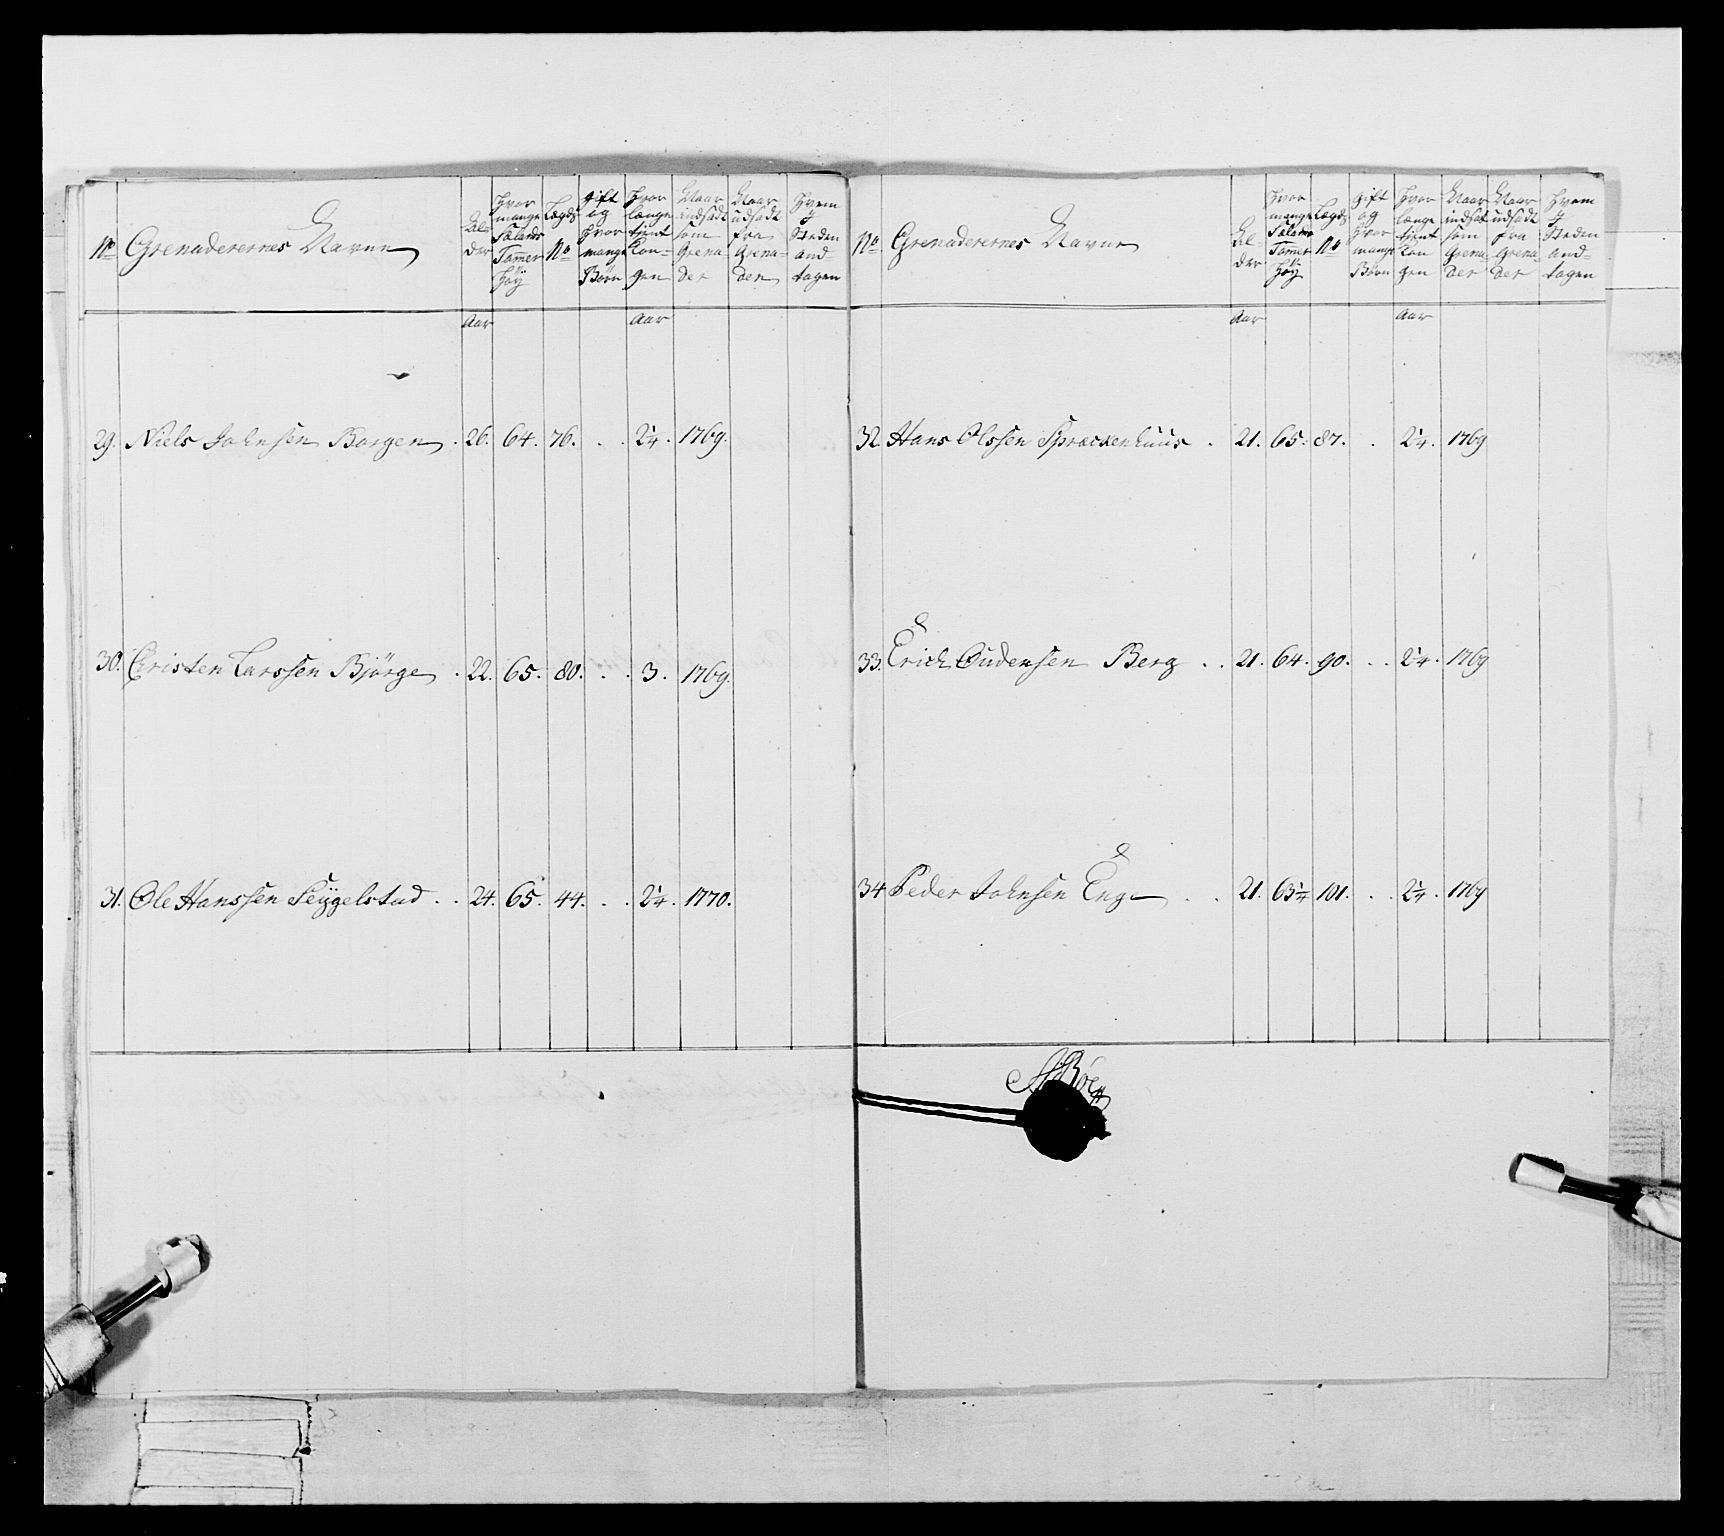 No Grenaderernes Navne | Al- der | Hvor mange Siælands Tomer Høy | Lægds No | Gift og Hvor mange Børn | Hvor længe tient Kon- gen | Naar indsadt som Grena- der | Naar udsadt fra Grena- der | Hvem i Steden and- tagen
Aar Aar
29. Niels Johnsen Borgen . 26. 64. 76. . . 2 1/4 . 1769.
30. Christen Larssen Bjørge . 22. 65. 80. . . 3. 1769.
31. Ole Hanssen Teÿgelstad . . 24. 65. 44. . . 2 1/4 . 1770.
No Grenaderernes Navne | Al- der | Hvor mange Siælands Tomer Høÿ | Lægds No | Gift og Hvor mange Børn | Hvor længe tient Kon gen | Naar indsat som Grena- der | Naar udsadt fra Grena der | Hvem i Steden and- tagen
Aar Aar
32. Hans Olssen Spræckenhuus . 21. 65. 87. . 2 1/4 . 1769
33. Erich Oudensen Berg . . 21. 64. 90. . . 2 1/4 . 1769
34 Peder Johnsen Enge . . 21. 63 1/4 101. . . 2 1/4 . 1769